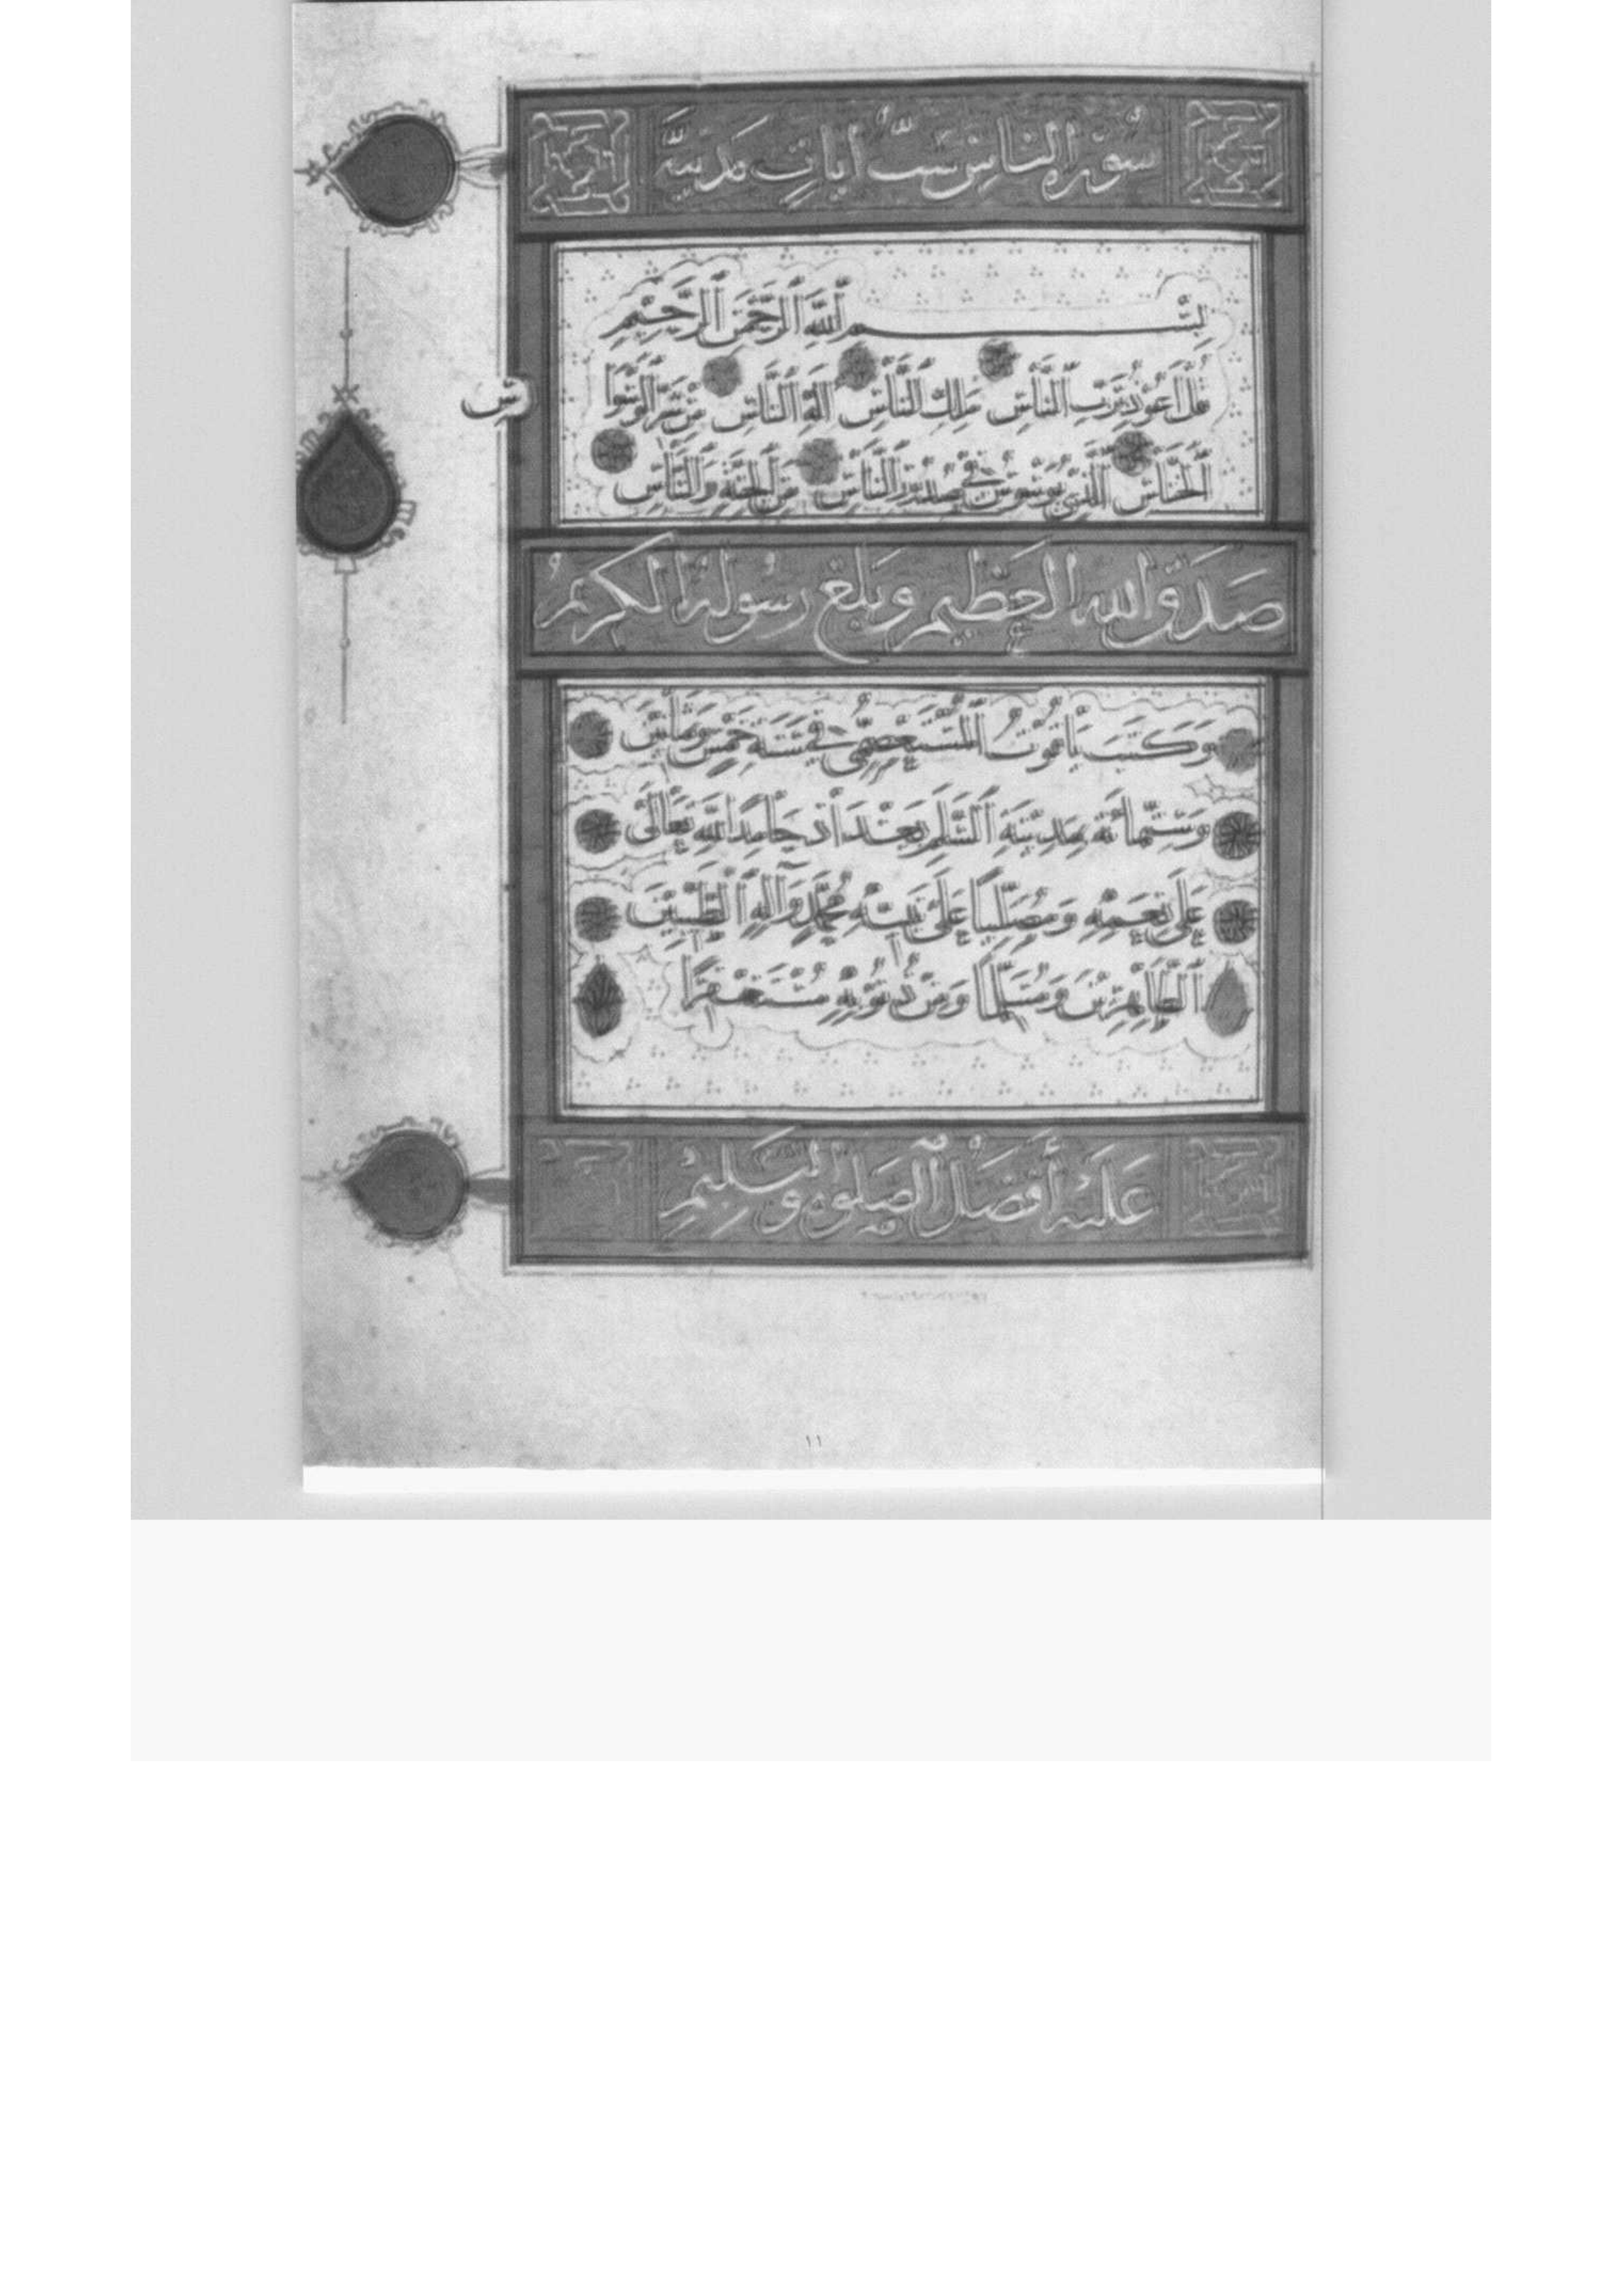 سورة الناس ست ايات مدنية
بِسْمِ اللَّهِ الرَّحْمَٰنِ الرَّحِيمِ
قُلْ أَعُوذُ بِرَبِّ النَّاسِ مَلِكِ النَّاسِ إِلَٰهِ النَّاسِ مِنْ شَرِّ الْوَسْوَا
سِ
الْخَنَّاسِ الَّذِي يُوَسْوِسُ فِي صُدُورِ النَّاسِ مِنَ الْجِنَّةِ وَالنَّاسِ
صدق الله العظيم وبلغ رسوله الكريم
وَكَتَبَ يَاقُوتُ الْمُسْتَعْصِمِيُّ فِي سَنَةِ خَمْسٍ وَثَمَانِينَ
وَسِتِّمائَة بِمَدِينَةِ السَّلَمِ بَغْدَاذ حَامِدًا لِلَّهِ تَعَالَى
عَلَى نِعَمِهِ وَمُصَلِّيًا عَلَى نَبِيِّهِ مُحَمَّدٍ وَآلِهِ الطَّيِّبِينَ
الطَّاهِرِينَ وَمُسَلِّمًا وَمِنْ ذُنُوبِهِ مُسْتَغْفِرًا
عليه أفضل الصلوة والتسليم
١١